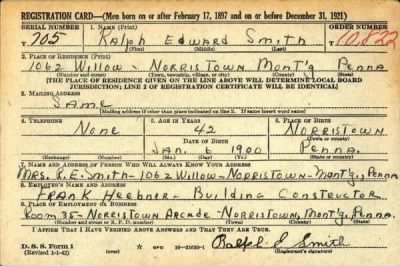 REGISTRATION CARD—(Men born on or after February 17, 1897 and on or before December 31, 1921)
SERIAL NUMBER 1. NAME (Print) ORDER NUMBER
T 705 Ralph Edward Smith 10,822
(First) (Middle) (Last)
2. PLACE OF RESIDENCE (Print)
1062 Willow - Norristown Mont'g Penna
(Number and street) (Town, township, village, or city) (County) (State)
[THE PLACE OF RESIDENCE GIVEN ON THE LINE ABOVE WILL DETERMINE LOCAL BOARD
JURISDICTION; LINE 2 OF REGISTRATION CERTIFICATE WILL BE IDENTICAL]
3. MAILING ADDRESS
Same
(Mailing address if other than place indicated on line 2. If same insert word same)
4. TELEPHONE 5. AGE IN YEARS 6. PLACE OF BIRTH
None 42 Norristown
DATE OF BIRTH (Town or county)
Jan. 6 1900 Penna.
(Exchange) (Number) (Mo.) (Day) (Yr.) (State or country)
7. NAME AND ADDRESS OF PERSON WHO WILL ALWAYS KNOW YOUR ADDRESS
Mrs. R. E. Smith - 1062 Willow - Norristown - Mont'g, Penna.
8. EMPLOYER'S NAME AND ADDRESS
Frank Heebner - Building Constructor
9. PLACE OF EMPLOYMENT OR BUSINESS
Room 35 - Norristown Arcade - Norristown, Montg, Penna.
(Number and street or R. F. D. number) (Town) (County) (State)
I AFFIRM THAT I HAVE VERIFIED ABOVE ANSWERS AND THAT THEY ARE TRUE.
D. S. S. Form 1
(Revised 1-1-42) (over) GPO 16—21630-1 Ralph E Smith
(Registrant's signature)